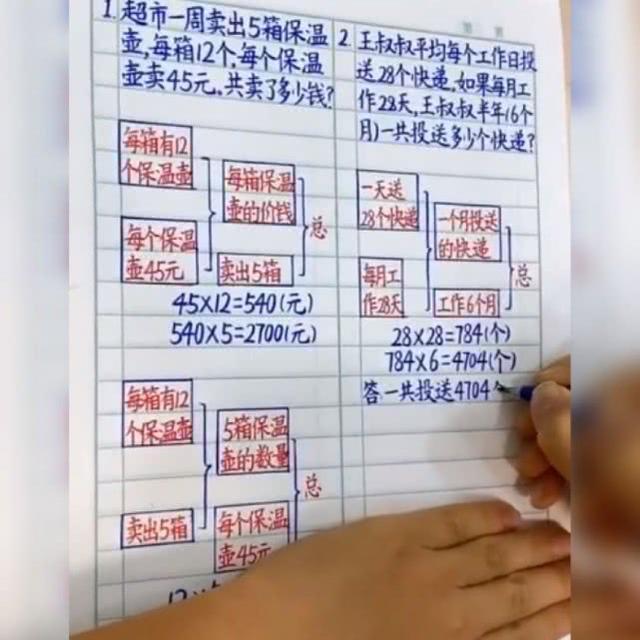 1. 超市一周卖出5箱保温
壶,每箱12个,每个保温
壶卖45元,共卖了多少钱?
每箱有12
个保温壶
每箱保温
壶的价钱
总
每个保温
壶45元
卖出5箱
45×12=540(元)
540×5=2700(元)
每箱有12
个保温壶
5箱保温
壶的数量
总
卖出5箱
每个保温
壶45元
2. 王叔叔平均每个工作日投
送28个快递,如果每月工
作28天,王叔叔半年(6个
月)一共投送多少个快递?
一天送
28个快递
一个月投送
的快递
总
每月工
作28天
工作6个月
28×28=784(个)
784×6=4704(个)
答一共投送4704个